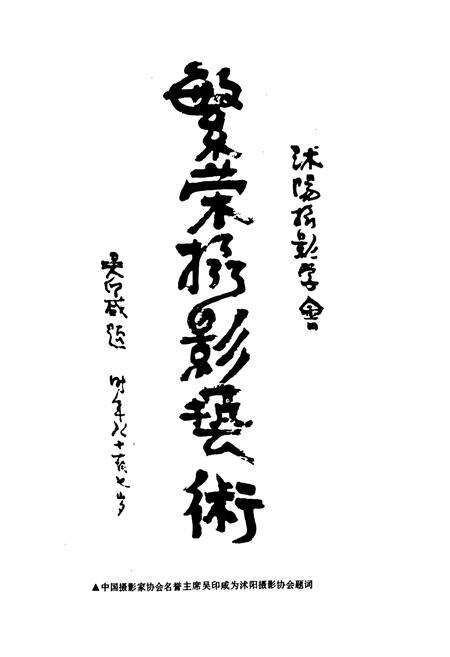 沭陽摄影学會
繁荣摄影藝術
吴印咸题 时年八十有七岁
▲中国摄影家协会名誉主席吴印咸为沭阳摄影协会题词